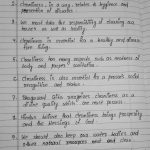 1. Cleanliness, in a way, relates to hygiene and prevention of diseases.
2. We must take the responsibility of cleaning our houses as well as locality.
3. Cleanliness is essential for a healthy and disease free living.
5. Cleanliness has many aspects such as neatness of body and proper sanitation.
6. Cleanliness is also essential to a person's social recognition and status.
7. Recognized cities recognizes cleanliness as a divine quality which one must possess.
8. Hindus believe that cleanliness brings prosperity and the blessings of God.
9. We should also keep our water bodies and other natural resources neat and clean